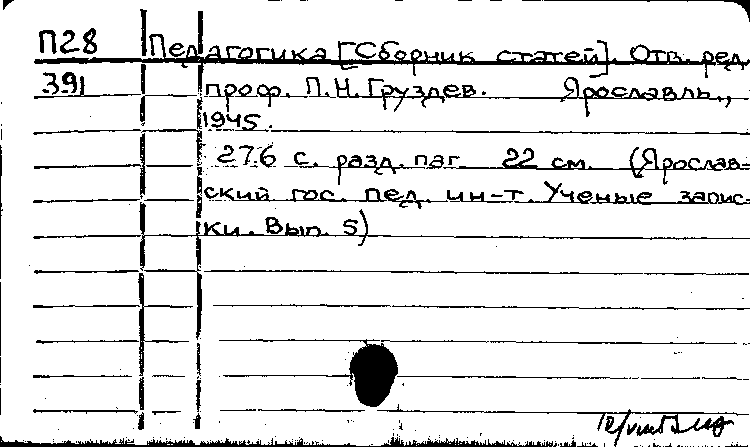 П28 Педагогика [Сборник статей]. Отв. ред.
391 проф. П.Н. Груздев. Ярославль,,
1945.
276 с. разд. паг. 22 см. (Ярослав-
ский гос. пед. ин-т. Ученые запис-
ки. Вып. 5)